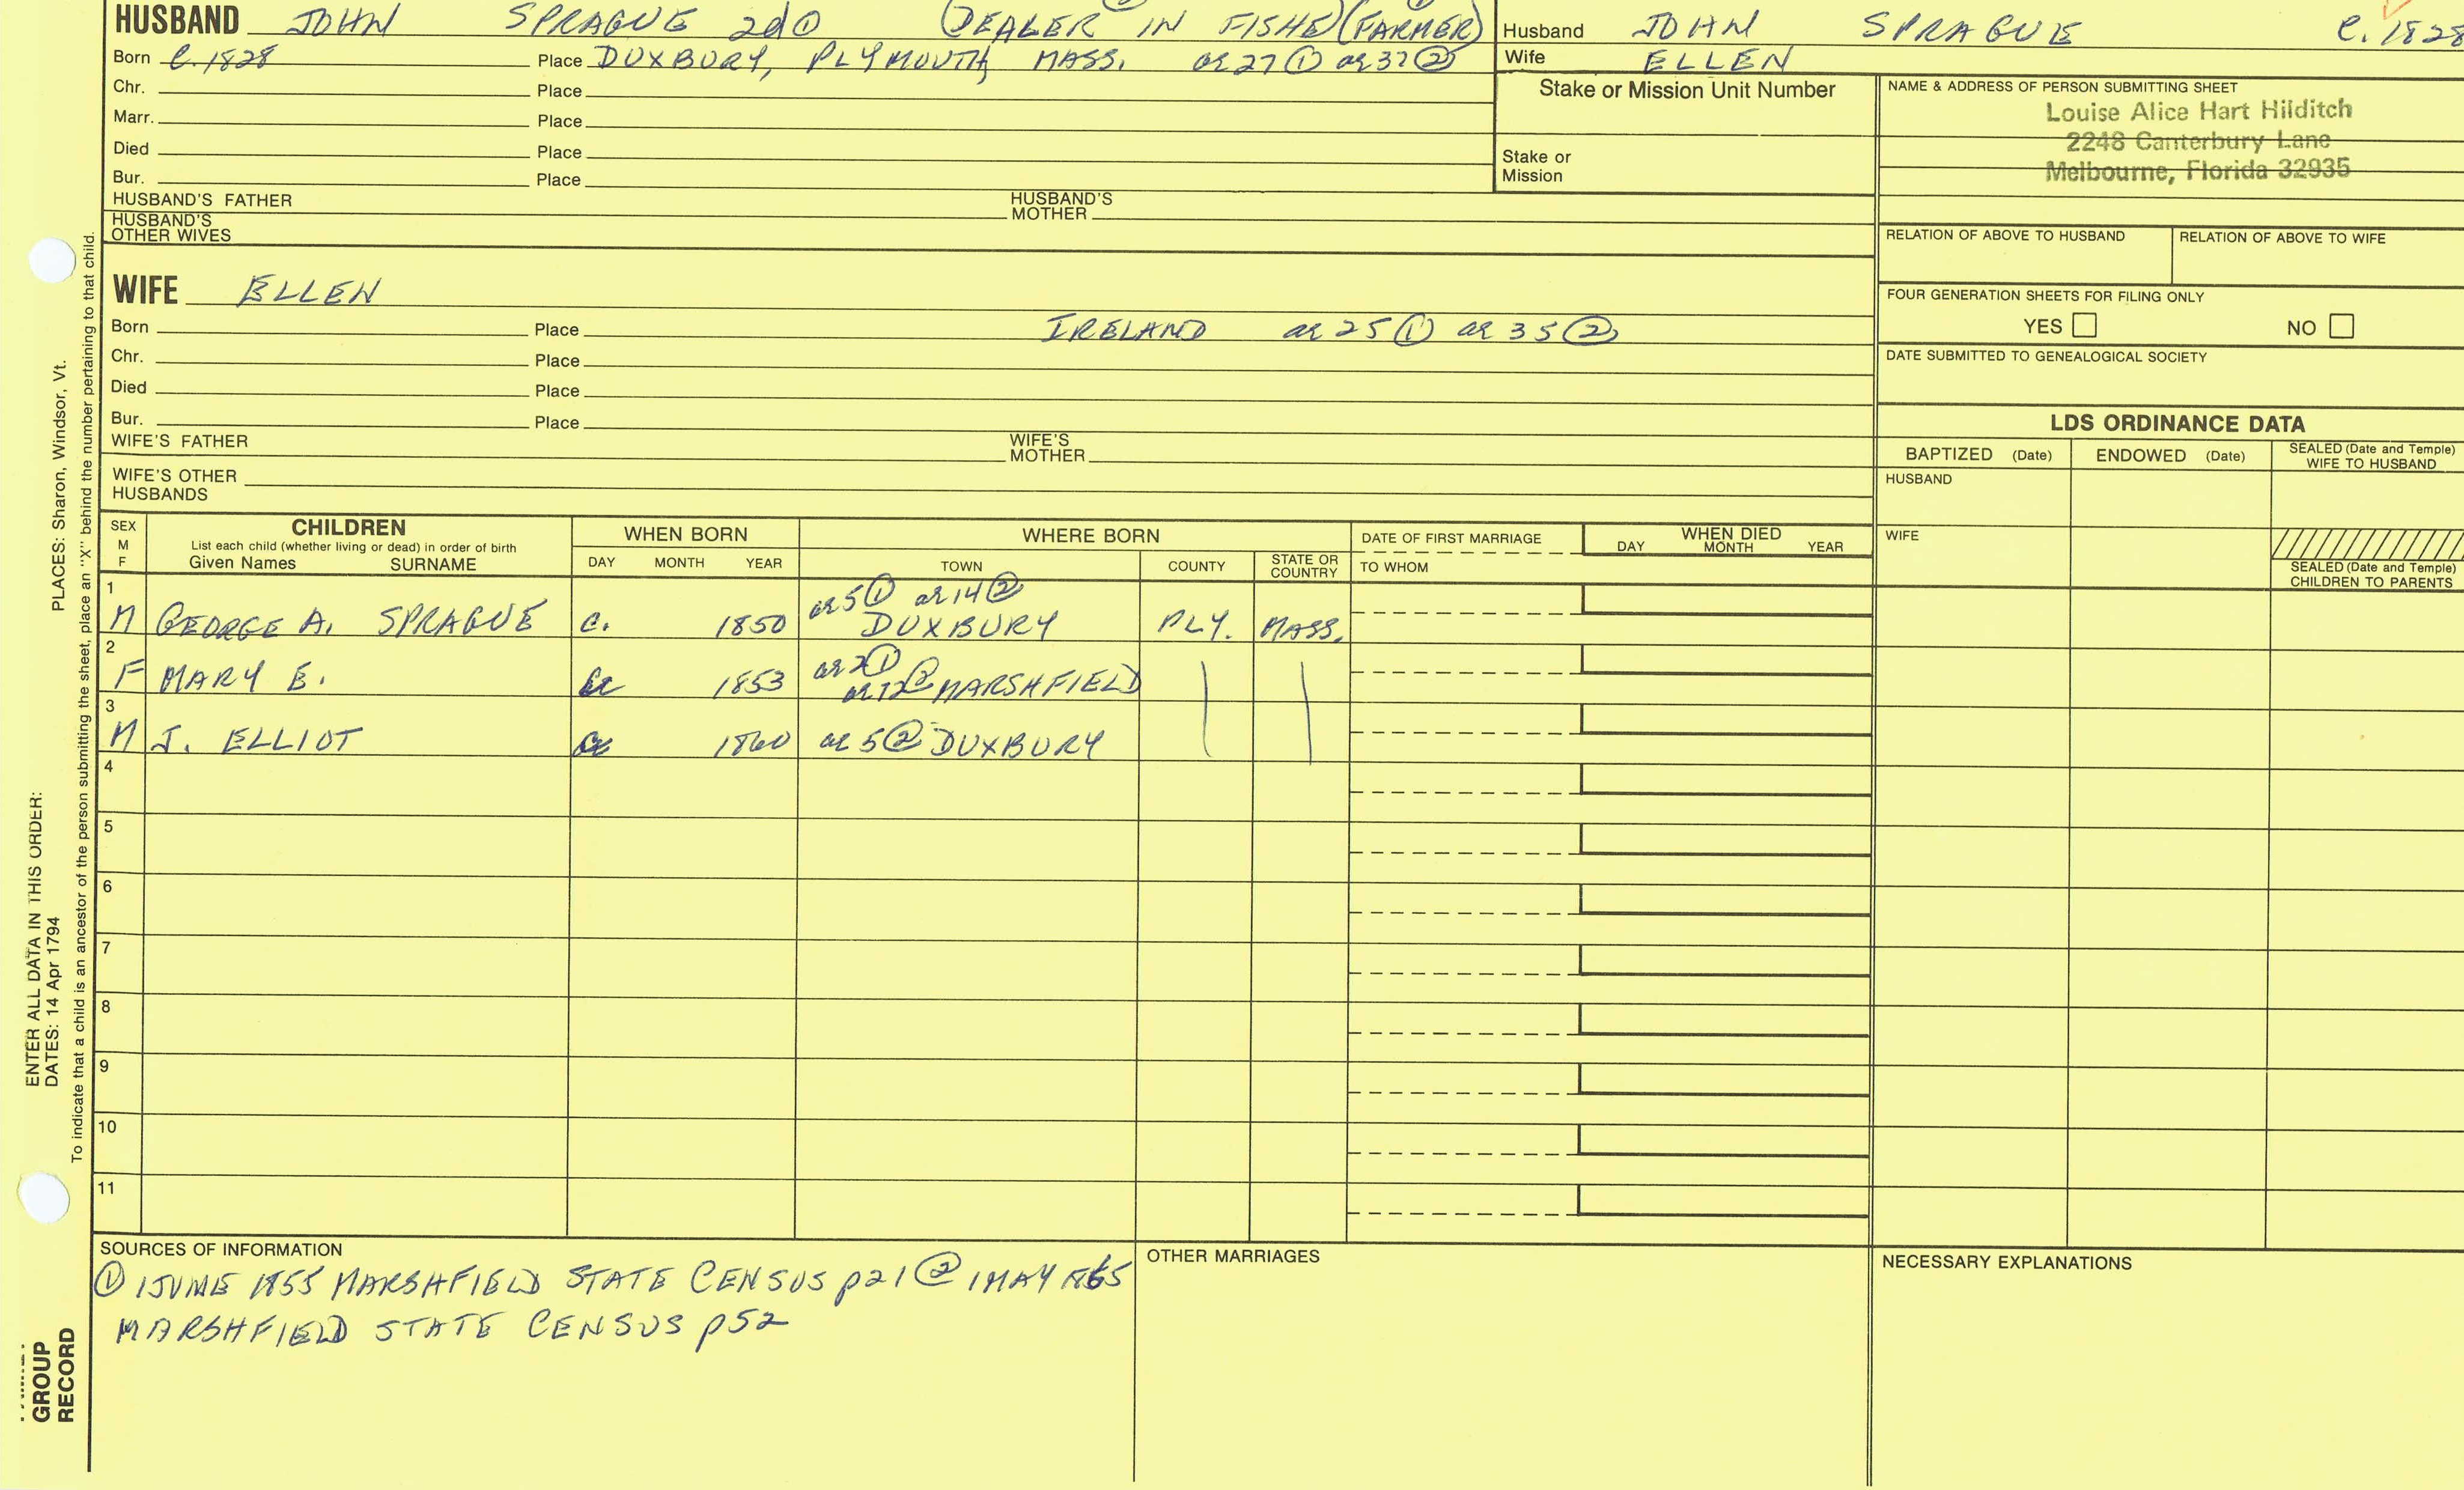 HUSBAND JOHN SPRAGUE 2d ① (DEALER IN FISHE) (FARMER)
Born C. 1828 Place DUXBURY, PLYMOUTH, MASS. ae 27 ① ae 37 ②
Chr. Place
Marr. Place
Died Place
Bur. Place
HUSBAND'S FATHER HUSBAND'S MOTHER
HUSBAND'S OTHER WIVES
Husband JOHN SPRAGUE C. 1828
Wife ELLEN
Stake or Mission Unit Number
Stake or Mission
NAME & ADDRESS OF PERSON SUBMITTING SHEET
Louise Alice Hart Hilditch
2248 Canterbury Lane
Melbourne, Florida 32935
RELATION OF ABOVE TO HUSBAND RELATION OF ABOVE TO WIFE
FOUR GENERATION SHEETS FOR FILING ONLY
YES NO
DATE SUBMITTED TO GENEALOGICAL SOCIETY
WIFE ELLEN
Born Place IRELAND ae 25 ① ae 35 ②
Chr. Place
Died Place
Bur. Place
WIFE'S FATHER WIFE'S MOTHER
WIFE'S OTHER HUSBANDS
LDS ORDINANCE DATA
BAPTIZED (Date) ENDOWED (Date) SEALED (Date and Temple) WIFE TO HUSBAND
HUSBAND
WIFE
SEALED (Date and Temple) CHILDREN TO PARENTS
SEX M F
CHILDREN
List each child (whether living or dead) in order of birth
Given Names SURNAME
WHEN BORN
DAY MONTH YEAR
WHERE BORN
TOWN COUNTY STATE OR COUNTRY
DATE OF FIRST MARRIAGE
TO WHOM
WHEN DIED
DAY MONTH YEAR
1 ae 5 ① ae 14 ②
M GEORGE A. SPRAGUE C. 1850 DUXBURY PLY. MASS.
2 ae 2 ①
F MARY E. 1853 ae 12 ② MARSHFIELD
3
M J. ELLIOT 1860 ae 5 ② DUXBURY
4
5
6
7
8
9
10
11
SOURCES OF INFORMATION
① 1 JUNE 1855 MARSHFIELD STATE CENSUS p21 ② 1 MAY 1865
MARSHFIELD STATE CENSUS p52
OTHER MARRIAGES
NECESSARY EXPLANATIONS
PLACES: Sharon, Windsor, Vt.
To indicate that a child is an ancestor of the person submitting the sheet, place an "X" behind the number pertaining to that child.
ENTER ALL DATA IN THIS ORDER:
DATES: 14 Apr 1794
GROUP
RECORD